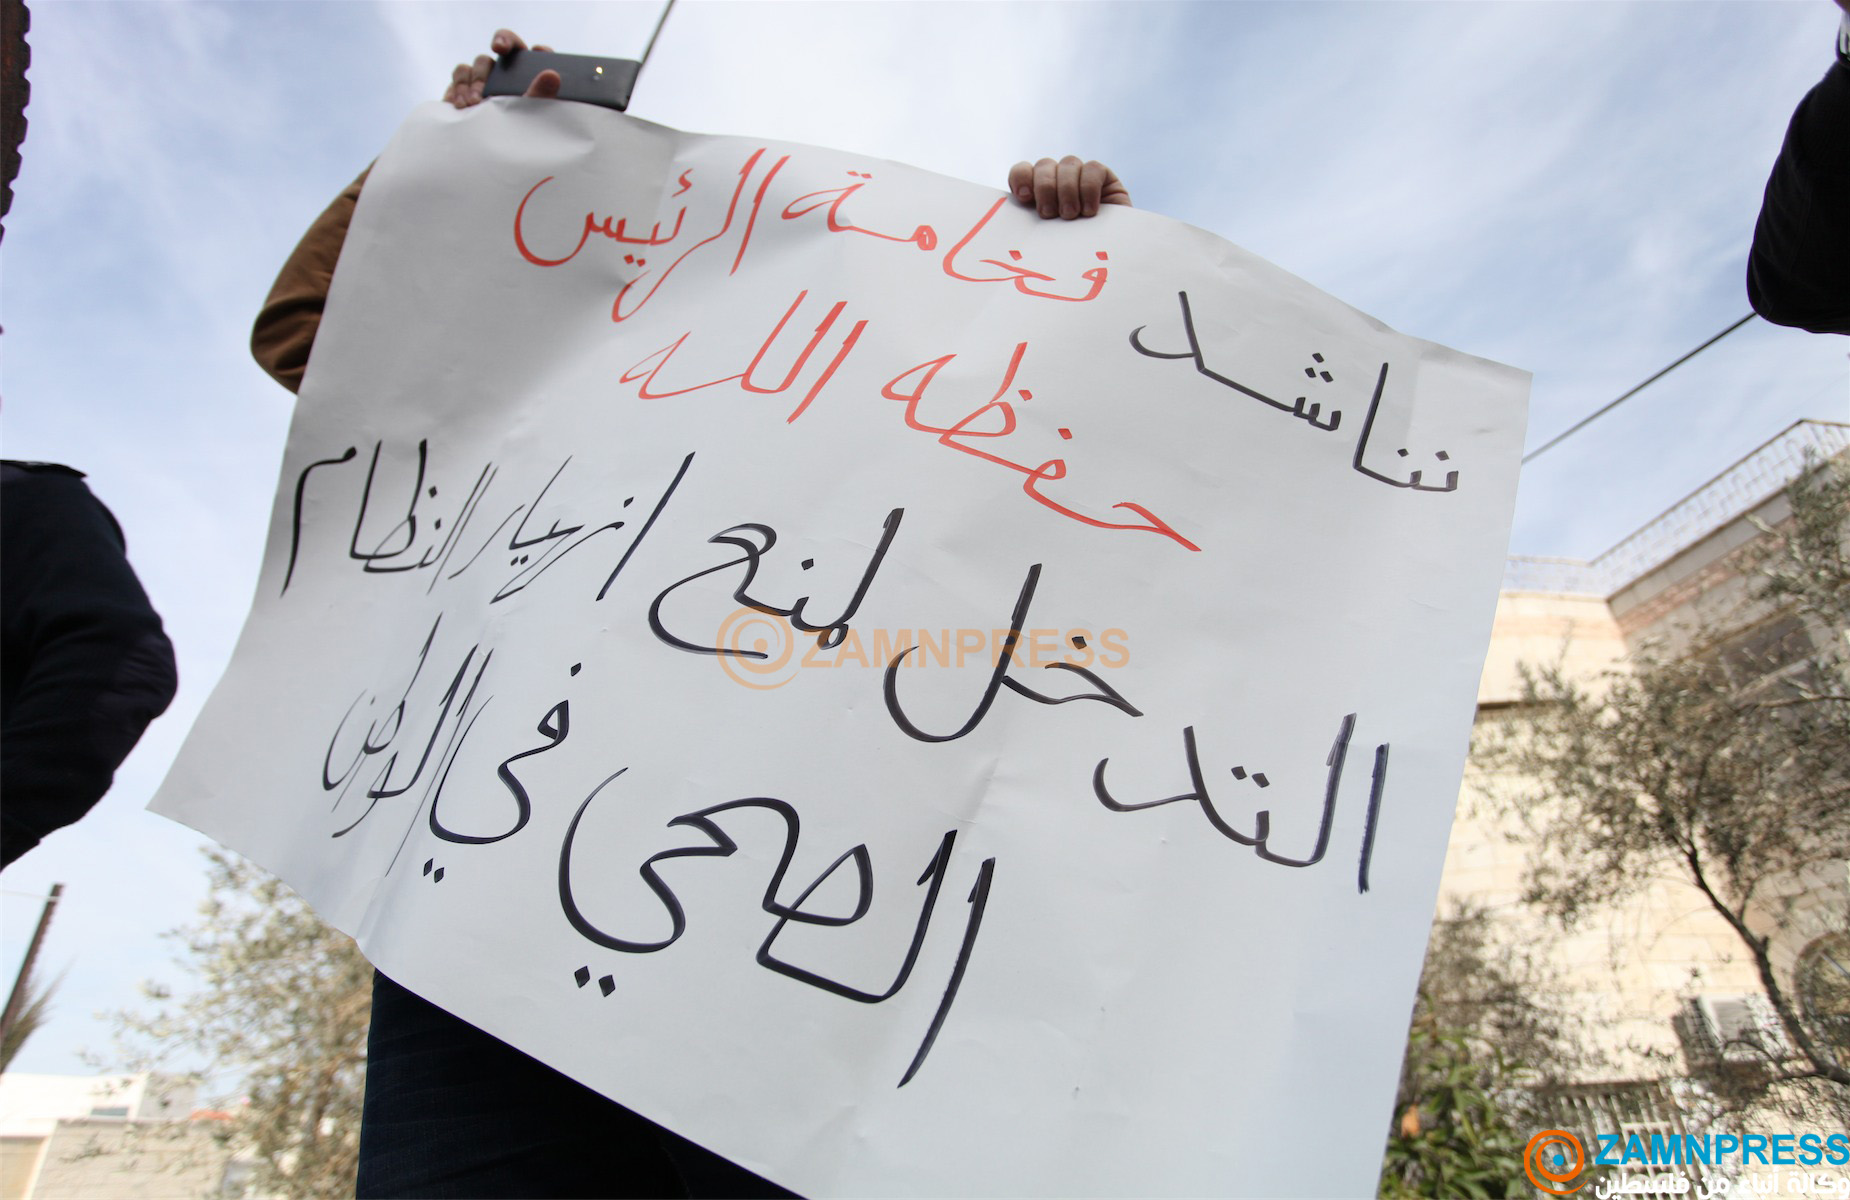 نناشد فخامة الرئيس
حفظه الله
التدخل لمنع انهيار النظام
الصحي في الوطن
ZAMNPRESS
ZAMNPRESS
وكالة أنباء من فلسطين